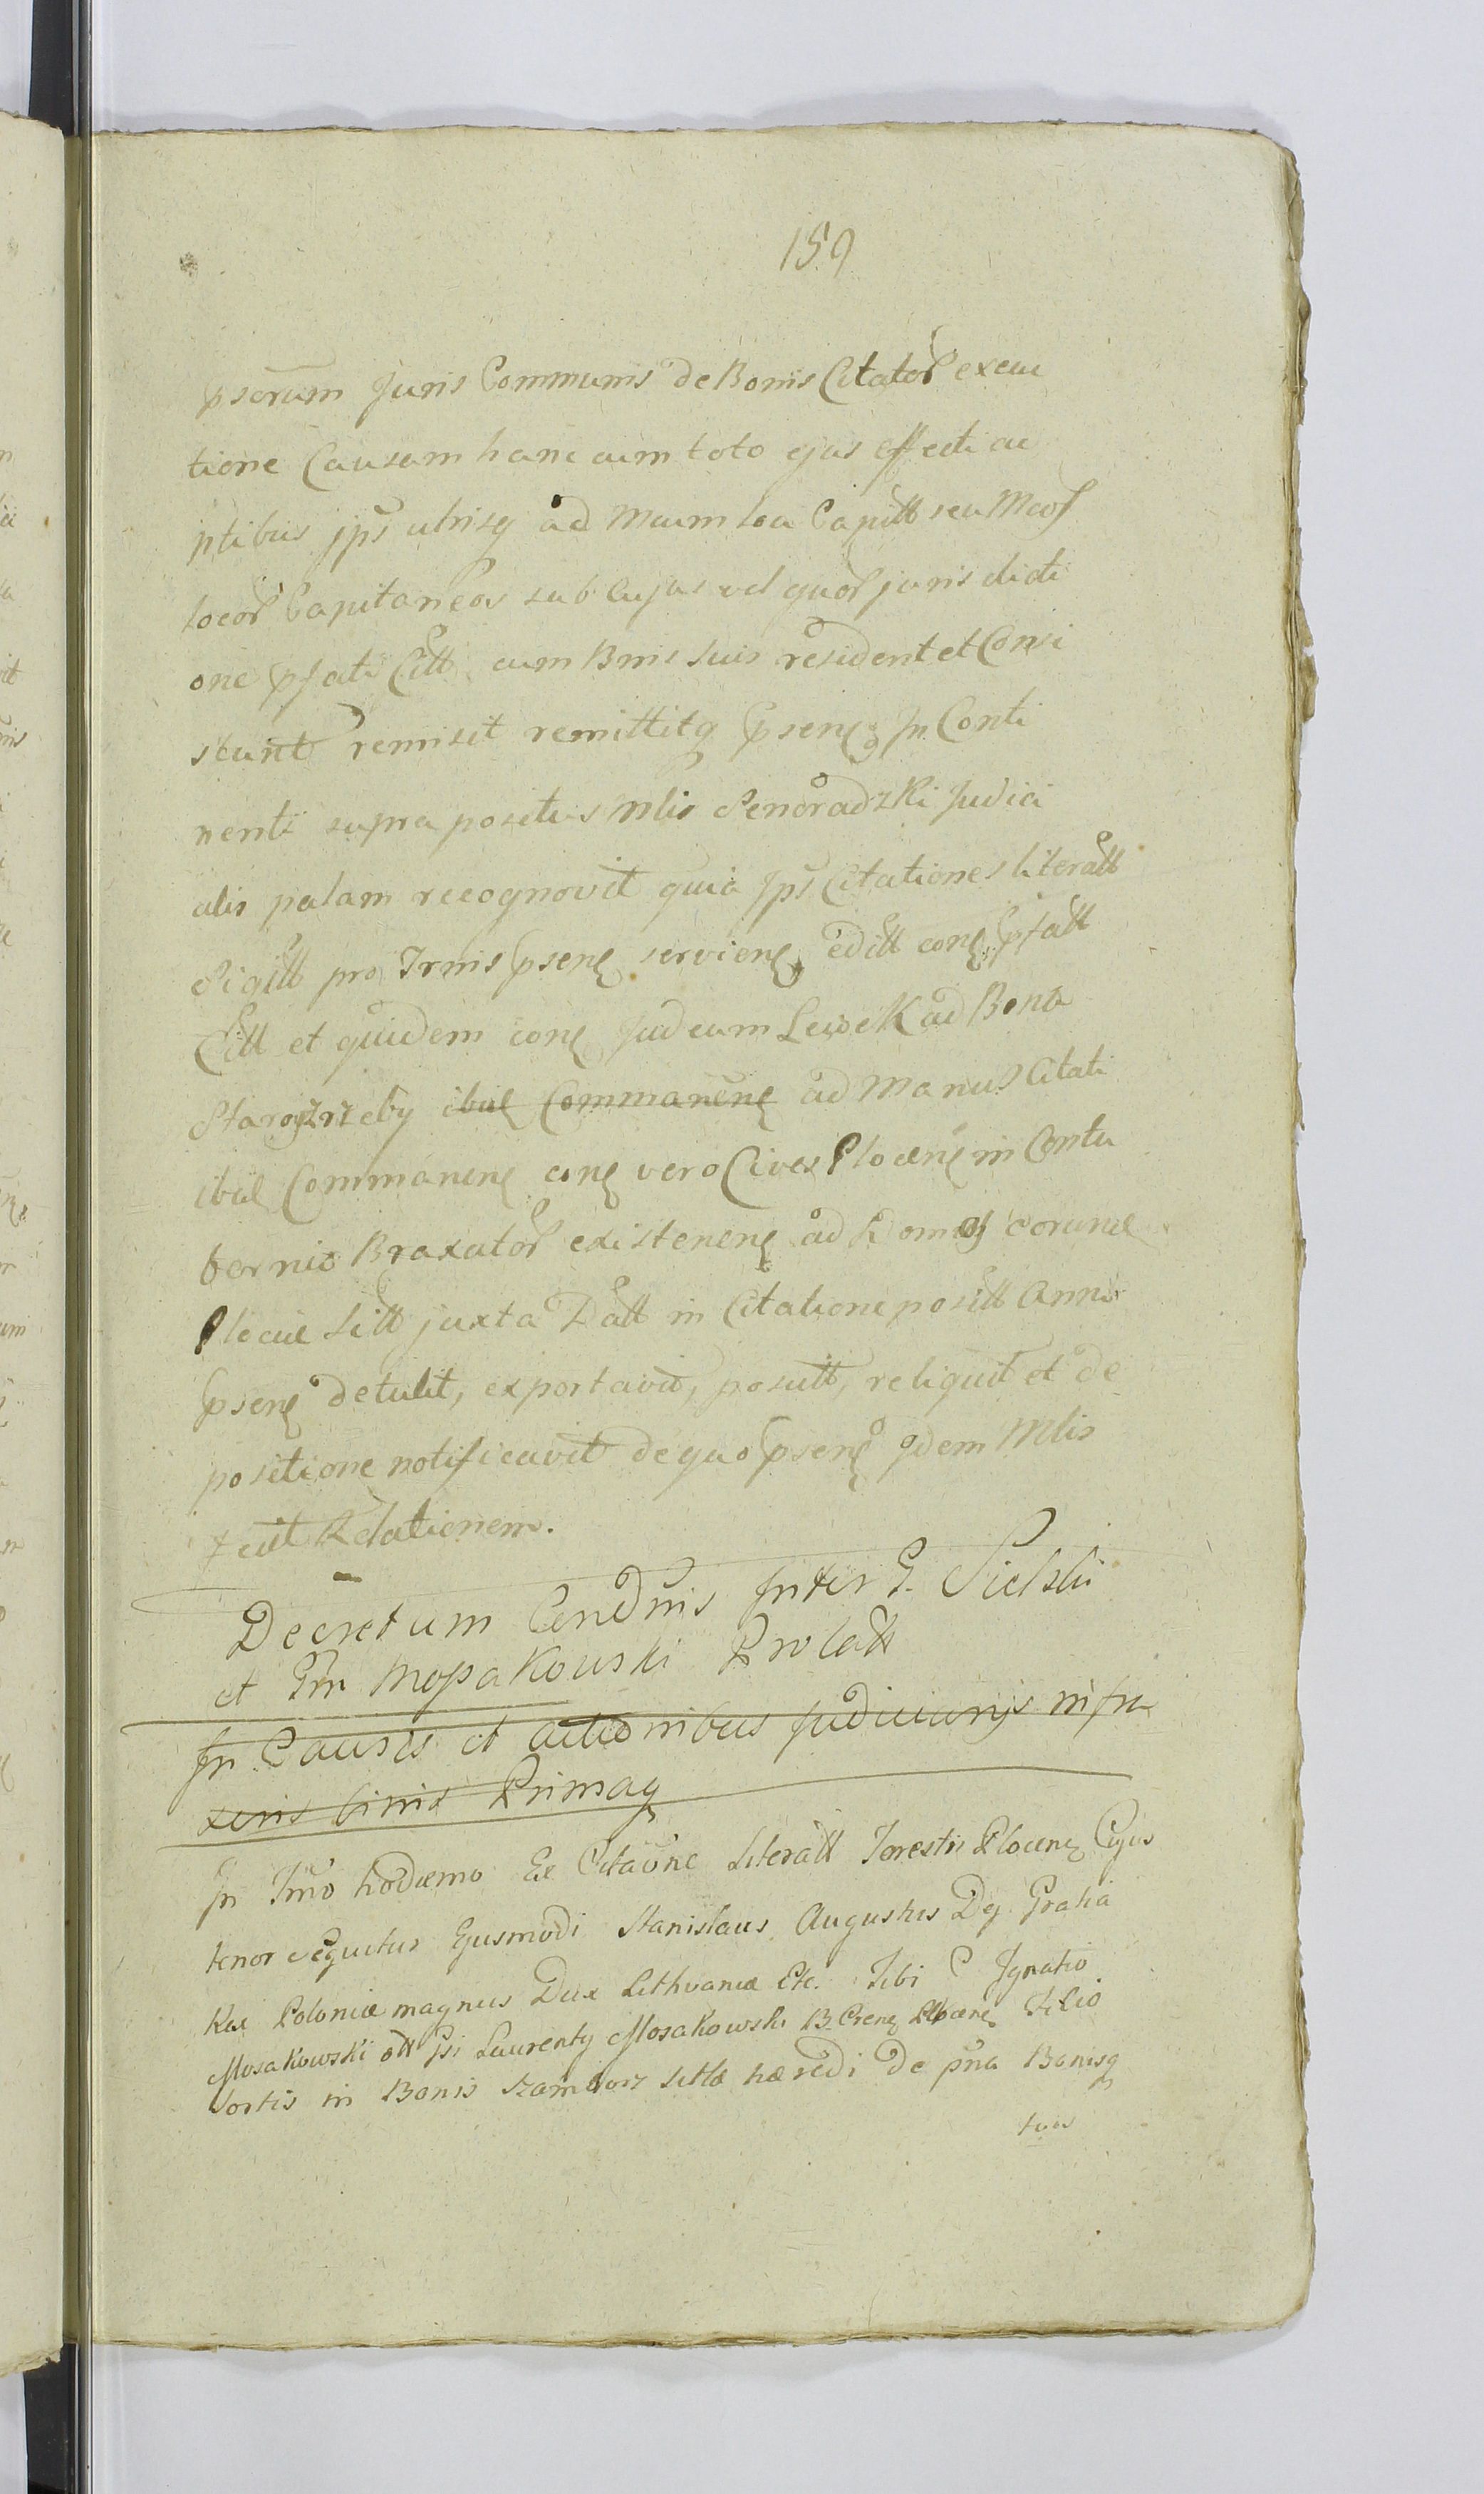 159
psorum Juris Communis de Bonis Citator execu
tione Causam hanc cum toto ejus effectu ac
ptibus jps utrisq ad Mcum loci Capitt seu Mcos
locor Capitaneos sub cujus vel quor jurisdicti
one psati Citt cum Bnis suis resident et Consi
stunt remisit remittitq psenę In Conti
nenti supra positus Mlis Senoradzki Judici
alis palam recognovit quia Jps Citationes literatt
Sigitt pro Trmis psenę servienę editt conę psatt
Citt et quidem conę Judeum Lewek ad Bona
Starozrzeby ibid Commanenę ad Manus Citati
ibid Commanenę conę vero Cives Plocenę in Contu
bernio Braxator existenenę ad domos eorum
Plociae Sitt juxta Datt in Citatione positt Anni
psenę detulit, exportavit, posuit, reliquit et de
positione notificavit de quo psenę idem Mlis
fecit Relationem.
Decretum Condnis Inter G. Sielski
et Gm Mossakowski Prolatt
In Causis et actionibus Judiciarijs infra
scris binis Primaq
In Trmo hodierno Ex Citaone Literatt Terestri Plocenę Cujus
tenor sequitur Ejusmodi Stanislaus Augustus Dej Gratia
Rex Poloniae magnus Dux Lithvaniae Etc. Tibi G Ignatio
Mosakowski ott Gsi Laurenty Mosakowski B. Crenę Plocenę Filio
Sortis in Bonis Szamborz sittae haeredi de pna Bonisq
tuis